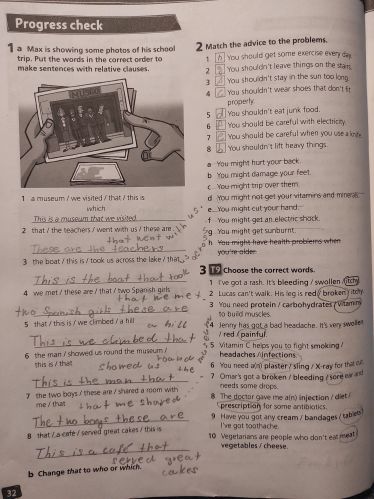 Progress check
1 a Max is showing some photos of his school
trip. Put the words in the correct order to
make sentences with relative clauses.
MUSEO
1 a museum / we visited / that / this is
which
This is a museum that we visited.
2 that / the teachers / went with us / these are
that went with us.
These are the teachers
3 the boat / this is / took us across the lake / that
This is the boat that took
us across
4 we met / these are / that / two Spanish girls
that we met.
two Spanish girls these are
5 that / this is / we climbed / a hill
a hill
This is we climbed that
6 the man / showed us round the museum /
this is / that
showed us round
the museum
This is the man that
7 the two boys / these are / shared a room with
me / that
that me shared
The two boys these are
8 that / a café / served great cakes / this is
This is a café that
served great
cakes
b Change that to who or which.
32
2 Match the advice to the problems.
1 h You should get some exercise every day.
2 You shouldn't leave things on the stairs.
3 You shouldn't stay in the sun too long.
4 You shouldn't wear shoes that don't fit
properly.
5 d You shouldn't eat junk food.
6 You should be careful with electricity.
7 You should be careful when you use a knife.
8 You shouldn't lift heavy things.
a You might hurt your back.
b You might damage your feet.
c You might trip over them.
d You might not get your vitamins and minerals.
e You might cut your hand.
f You might get an electric shock.
g You might get sunburnt.
h You might have health problems when
you're older.
3 T9 Choose the correct words.
1 I've got a rash. It's bleeding / swollen / itchy.
2 Lucas can't walk. His leg is red / broken / itchy.
3 You need protein / carbohydrates / vitamins
to build muscles.
4 Jenny has got a bad headache. It's very swollen
/ red / painful.
5 Vitamin C helps you to fight smoking /
headaches / infections.
6 You need a(n) plaster / sling / X-ray for that cut.
7 Omar's got a broken / bleeding / sore ear and
needs some drops.
8 The doctor gave me a(n) injection / diet /
prescription for some antibiotics.
9 Have you got any cream / bandages / tablets?
I've got toothache.
10 Vegetarians are people who don't eat meat /
vegetables / cheese.